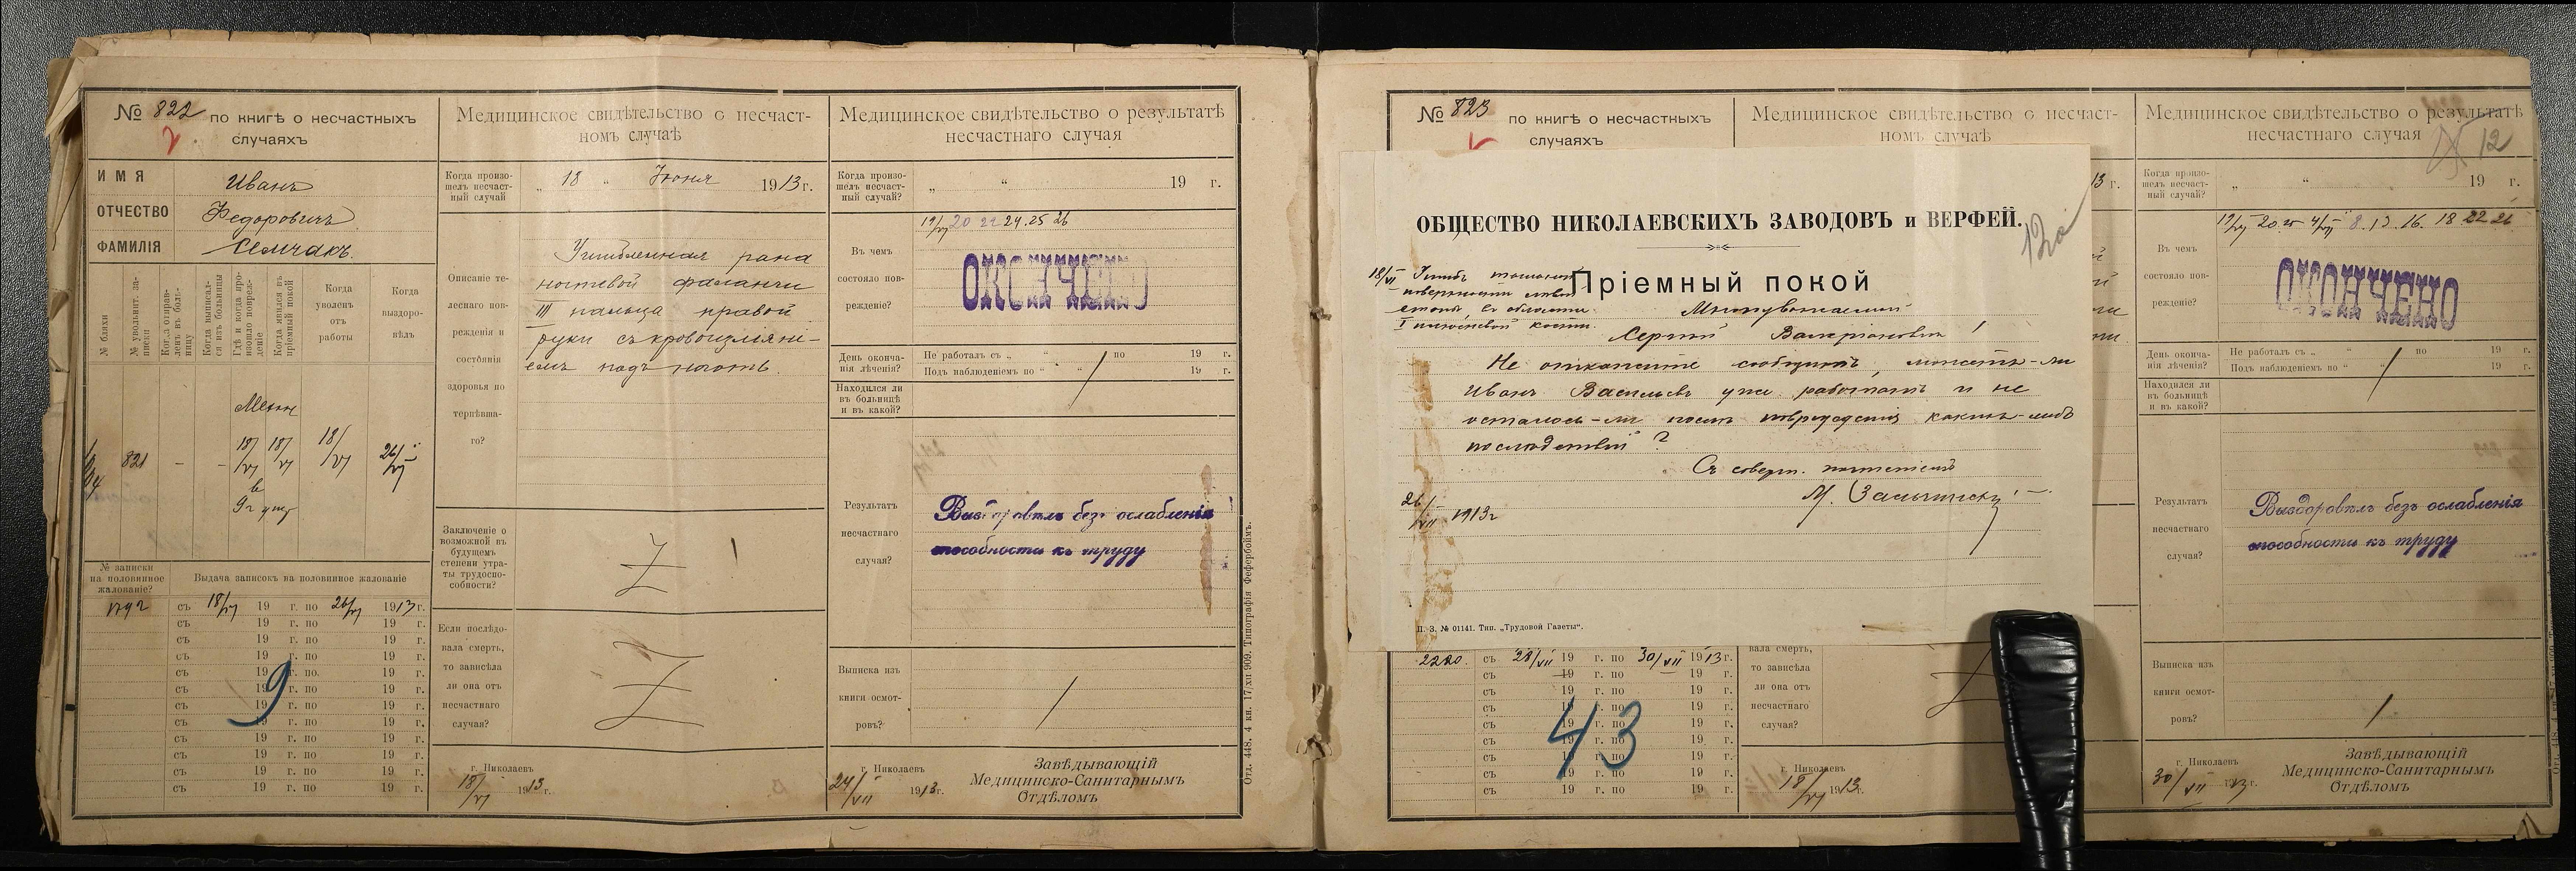 № 822 по книгѣ о несчастныхъ
случаяхъ
ИМЯ Иванъ
ОТЧЕСТВО Федоровичъ
ФАМИЛІЯ Семчакъ.
№ бляхи
№ увольнит. за-
писки
Когда отправ-
ленъ въ боль-
ницу
Когда выписал-
ся изъ больницы
Гдѣ и когда про-
изошло повреж-
деніе
Когда явился въ
пріемный покой
Когда
уволенъ
отъ
работы
Когда
выздоро-
вѣлъ
821 – – 18/VI 18/VI 18/VI 26/VI
в
9 ч утр
№ записки
на половинное
жалованіе?
Выдача записокъ на половинное жалованіе
1792 съ 18/VI 19 г. по 26/VI 1913 г.
съ 19 г. по 19 г.
съ 19 г. по 19 г.
съ 19 г. по 19 г.
съ 19 г. по 19 г.
съ 19 г. по 19 г.
съ 19 г. по 19 г.
съ 19 г. по 19 г.
съ 19 г. по 19 г.
съ 19 г. по 19 г.
съ 19 г. по 19 г.
съ 19 г. по 19 г.
9
Медицинское свидѣтельство о несчаст-
номъ случаѣ
Когда произо-
шелъ несчаст-
ный случай
„ 18 “ Іюня 1913 г.
Описаніе те-
леснаго пов-
режденія и
состоянія
здоровья по
терпѣвша-
го?
Ушибленная рана
ногтевой фаланги
III пальца правой
руки съ кровоизліяні-
емъ подъ ноготь.
Заключеніе о
возможной въ
будущемъ
степени утра-
ты трудоспо-
собности?
Если послѣдо-
вала смерть,
то зависѣла
ли она отъ
несчастнаго
случая?
г. Николаевъ
18/VI 1913 г.
Медицинское свидѣтельство о результатѣ
несчастнаго случая
Когда произо-
шелъ несчаст-
ный случай?
„ “ 19 г.
19/VI 20 22 24. 25 26
Въ чемъ
состояло пов-
режденіе?
ОКОНЧЕНО
День оконча-
нія лѣченія?
Не работалъ съ „ “ по 19 г.
Подъ наблюденіемъ по “ “ 19 г.
Находился ли
въ больницѣ
и въ какой?
Результатъ
несчастнаго
случая?
Выздоровѣлъ безъ ослабленія
способности къ труду
Выписка изъ
книги осмот-
ровъ?
г. Николаевъ
24/VII 1913 г.
Завѣдывающій
Медицинско-Санитарнымъ
Отдѣломъ
Отд. 448. 4 кн. 17/xii 909. Типографія Фефербоймъ.
№ 823 по книгѣ о несчастныхъ
случаяхъ
Медицинское свидѣтельство о несчаст-
номъ случаѣ
13 г.
ОБЩЕСТВО НИКОЛАЕВСКИХЪ ЗАВОДОВЪ и ВЕРФЕЙ.
Пріемный покой
18/VI Ушибъ
поверхности лѣвой
стопы въ области
I плюсневой кости.
Многоуважаемый
Сергѣй Валеріановичъ!
Не откажите сообщить, можетъ-ли
Иванъ Васильевъ уже работать и не
осталось-ли послѣ поврежденія какихъ-либо
послѣдствій?
Съ соверш. почтеніемъ
26/VII 1913 г
П. З. № 01141. Тип. „Трудовой Газеты“.
2220. съ 28/VII 19 г. по 30/VII 1913 г.
съ 19 г. по 19 г.
съ 19 г. по 19 г.
съ 19 г. по 19 г.
съ 19 г. по 19 г.
съ 19 г. по 19 г.
съ 19 г. по 19 г.
съ 19 г. по 19 г.
съ 19 г. по 19 г.
43
вала смерть,
то зависѣла
ли она отъ
несчастнаго
случая?
г. Николаевъ
18/VI 1913 г.
Медицинское свидѣтельство о результатѣ
несчастнаго случая
12
Когда произо-
шелъ несчаст-
ный случай?
„ “ 19 г.
19/VI 20. 25 4/VII 8. 13. 16. 18 22 26
Въ чемъ
состояло пов-
режденіе?
ОКОНЧЕНО
День оконча-
нія лѣченія?
Не работалъ съ „ “ по 19 г.
Подъ наблюденіемъ по “ “ 19 г.
Находился ли
въ больницѣ
и въ какой?
Результатъ
несчастнаго
случая?
Выздоровѣлъ безъ ослабленія
способности къ труду
Выписка изъ
книги осмот-
ровъ?
г. Николаевъ
30/VII 13 г.
Завѣдывающій
Медицинско-Санитарнымъ
Отдѣломъ